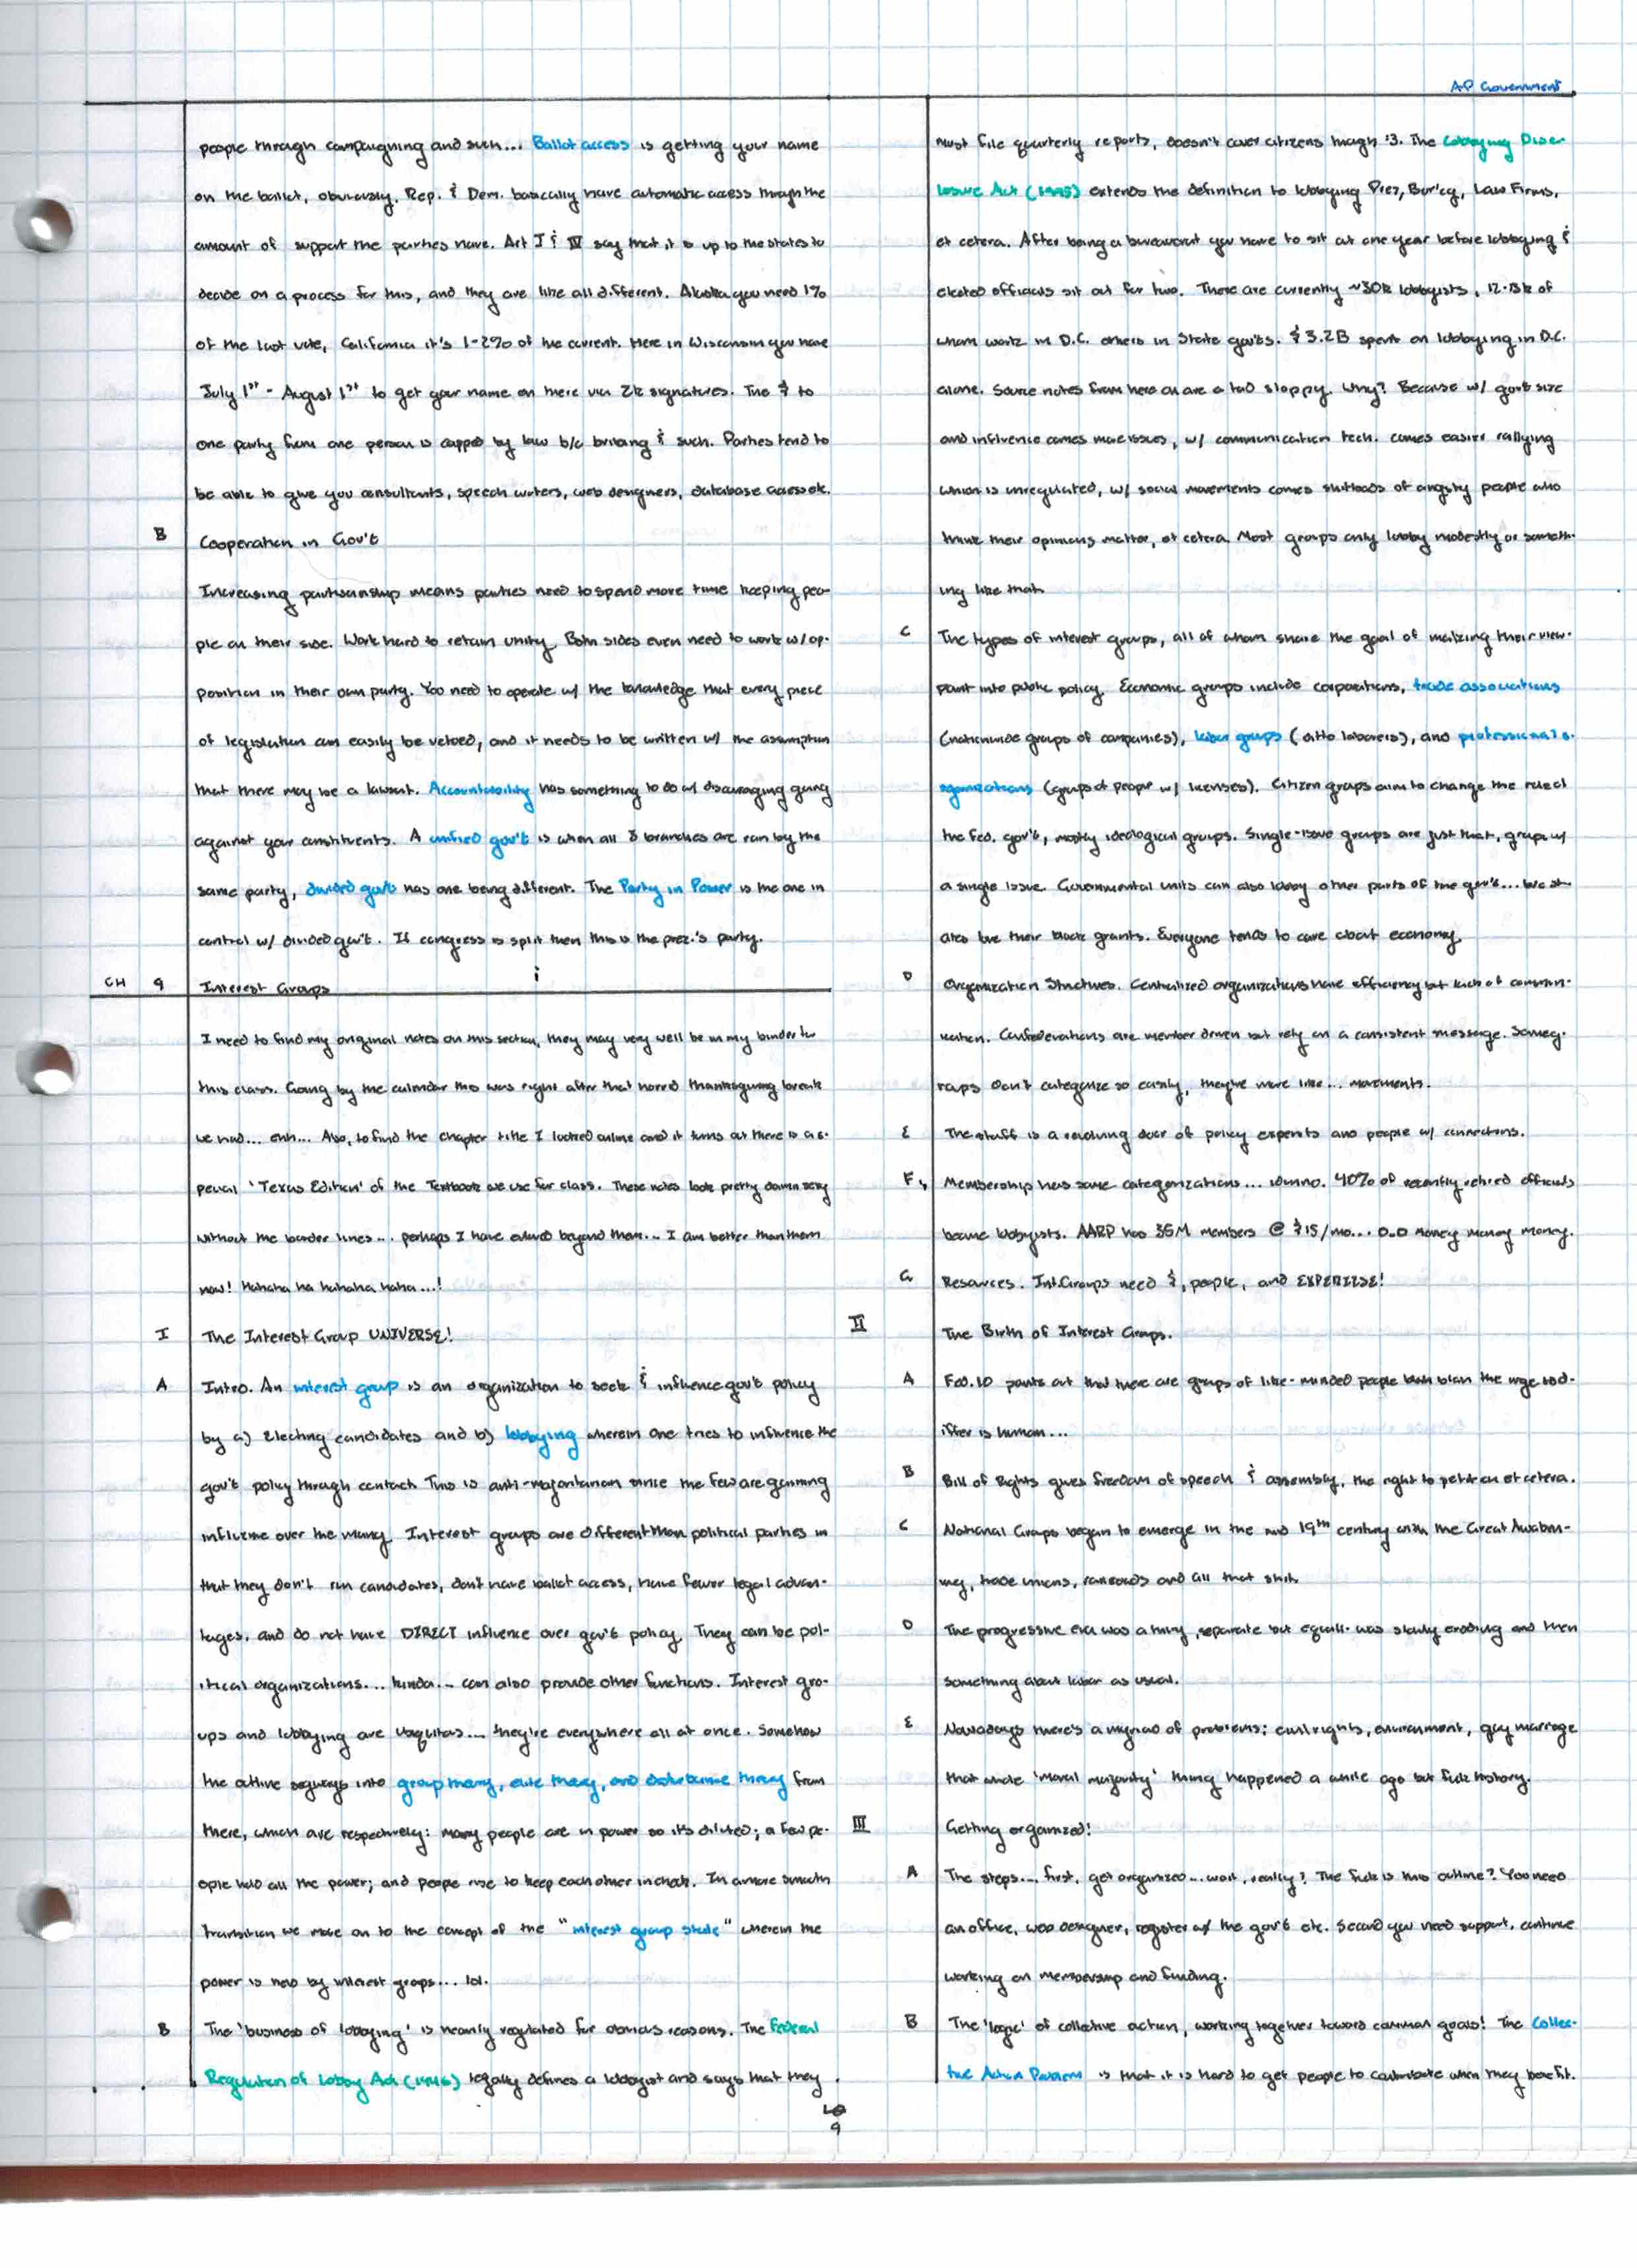 AP Government
people through campaigning and such... Ballot access is getting your name
on the ballot, obviously. Rep. & Dem. basically have automatic access through the
amount of support the parties have. Art I & IV say that it is up to the states to
decide on a process for this, and they are like all different. Alaska you need 1%
of the last vote, California it's 1-2% of the current. Here in Wisconsin you have
July 1st - August 1st to get your name on there via 2k signatures. The $ to
one party from one person is capped by law b/c bribing & such. Parties tend to
be able to give you consultants, speech writers, web designers, database access etc.
B Cooperation in Gov't
Increasing partisanship means parties need to spend more time keeping peo-
ple on their side. Work hard to retain unity. Both sides even need to work w/ op-
position in their own party. You need to operate w/ the knowledge that every piece
of legislation can easily be vetoed, and it needs to be written w/ the assumption
that there may be a lawsuit. Accountability has something to do w/ discouraging going
against your constituents. A unified gov't is when all 3 branches are ran by the
same party, divided gov't has one being different. The Party in Power is the one in
control w/ divided gov't. If congress is split then this is the prez.'s party.
CH 9 Interest Groups
I need to find my original notes on this section, they may very well be in my binder for
this class. Going by the calendar this was right after that horrid thanksgiving break
we had... enh... Also, to find the chapter title I looked online and it turns out there is a s-
pecial 'Texas Edition' of the Textbook we use for class. These notes look pretty damn sexy
without the border lines... perhaps I have evolved beyond them... I am better than them
now! Hahaha ha hahaha haha...!
I The Interest Group UNIVERSE!
A Intro. An interest group is an organization to seek & influence gov't policy
by a) Electing candidates and b) lobbying wherein one tries to influence the
gov't policy through contact. This is anti-majoritarian since the few are gaining
influence over the many. Interest groups are different than political parties in
that they don't run candidates, don't have ballot access, have fewer legal advan-
tages, and do not have DIRECT influence over gov't policy. They can be pol-
itical organizations... kinda... can also provide other functions. Interest gro-
ups and lobbying are ubiquitas... they're everywhere all at once. Somehow
the outline segways into group theory, elite theory, and disturbance theory from
there, which are respectively: Many people are in power so it's diluted; a few pe-
ople hold all the power; and people rise to keep each other in check. In a more smooth
transition we move on to the concept of the "interest group state" wherein the
power is held by interest groups... lol.
B The 'business of lobbying' is heavily regulated for obvious reasons. The Federal
Regulation of Lobby Act (1946) legally defines a lobbyist and says that they
must file quarterly reports, doesn't cover citizens though :3. The Lobbying Disc-
losure Act (1995) extends the definition to lobbying Prez, Bur'cy, Law Firms,
et cetera. After being a bureaucrat you have to sit at one year before lobbying &
elected officials sit out for two. There are currently ~30k lobbyists, 12-13k of
whom work in D.C. others in State gov'ts. $3.2B spent on lobbying in D.C.
alone. Source notes from here on are a tad sloppy. Why? Because w/ gov't size
and influence comes more issues, w/ communication tech. comes easier rallying
which is unregulated, w/ social movements comes shitloads of angsty people who
think their opinions matter, et cetera. Most groups only lobby modestly or someth-
ing like that.
C The types of interest groups, all of whom share the goal of making their view-
point into public policy. Economic groups include corporations, trade associations
(nationwide groups of companies), labor groups (ditto laborers), and professional o-
rganizations (groups of people w/ licenses). Citizen groups aim to change the role of
the Fed. gov't, mostly ideological groups. Single-issue groups are just that, group w/
a single issue. Governmental units can also lobby other parts of the gov't... like st-
ates love their block grants. Everyone tends to care about economy.
D Organization Structures. Centralized organizations have efficiency but lack of commun-
ication. Confederations are member driven but rely on a consistent message. Some g-
roups don't categorize so easily, they're more like... movements.
E The staff is a revolving door of policy experts and people w/ connections.
F Membership has some categorizations... idunno. 40% of recently retired officials
become lobbyists. AARP has 35M members @ $15/mo... O_O Money money money.
G Resources. Int.Groups need $, people, and EXPERTISE!
II The Birth of Interest Groups.
A Fed. 10 points out that there are groups of like-minded people blah blah the urge to d-
iffer is human...
B Bill of Rights gives freedom of speech & assembly, the right to petition et cetera.
C National Groups began to emerge in the mid 19th century with the Great Awaken-
ing, trade unions, railroads and all that shit.
D The progressive era was a thing, separate but equall. was slowly eroding and then
something about labor as usual.
E Nowadays there's a myriad of problems; civil rights, environment, gay marriage
that whole 'moral majority' thing happened a while ago but fuck history.
III Getting organized!
A The steps... first, get organized... wait, really? The fuck is this outline? You need
an office, web designer, register w/ the gov't etc. Second you need support, continue
working on membership and funding.
B The 'logic' of collective action, working together toward common goals! The Collec-
tive Action Problem is that it is hard to get people to contribute when they benefit.
9